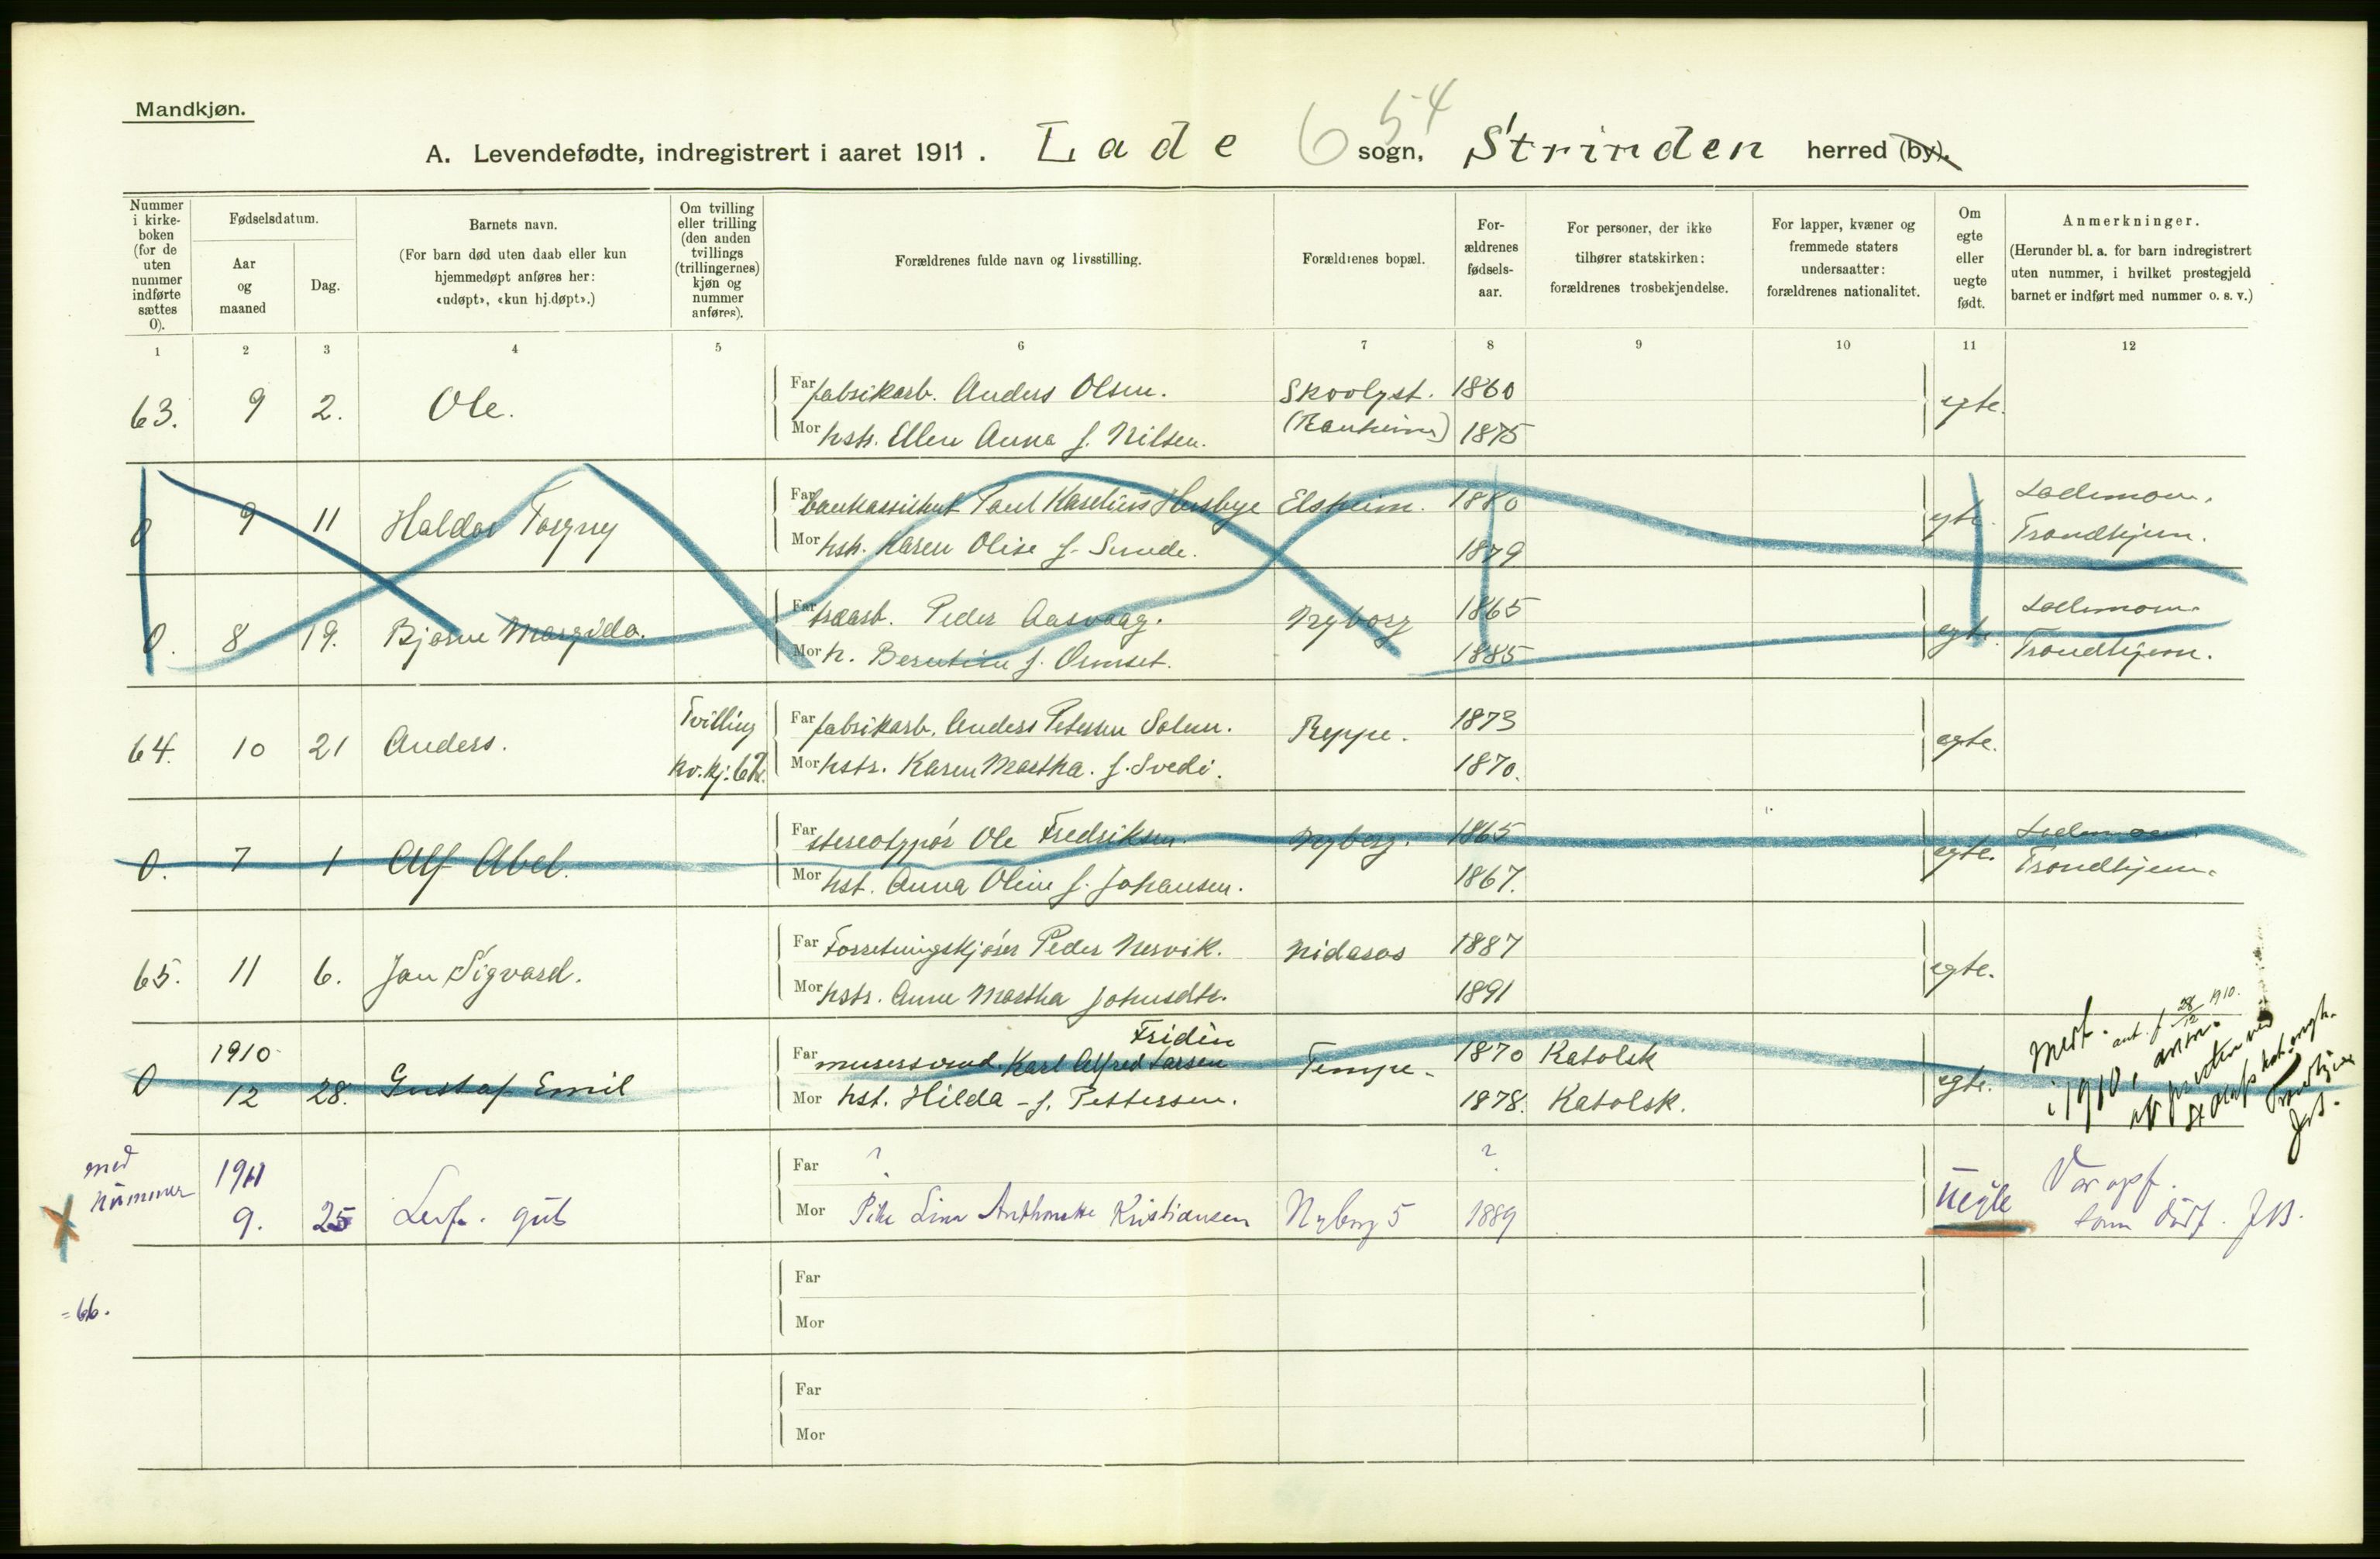 Mandkjøn.
6 54
A. Levendefødte, indregistrert i aaret 1911. Lade sogn, Strinden herred (by).
Nummer i kirke-boken (for de uten nummer indførte sættes 0).
Fødselsdatum.
Aar og maaned
Dag.
Barnets navn.
(For barn død uten daab eller kun hjemmedøpt anføres her: «udøpt», «kun hj.døpt».)
Om tvilling eller trilling (den anden tvillings (trillingernes) kjøn og nummer anføres).
Forældrenes fulde navn og livsstilling.
Forældrenes bopæl.
For-ældrenes fødsels-aar.
For personer, der ikke tilhører statskirken: forældrenes trosbekjendelse.
For lapper, kvæner og fremmede staters undersaatter: forældrenes nationalitet.
Om egte eller uegte født.
Anmerkninger.
(Herunder bl. a. for barn indregistrert uten nummer, i hvilket prestegjeld barnet er indført med nummer o. s. v.)
1 2 3 4 5 6 7 8 9 10 11 12
63. 9 2. Ole. Far fabrikarb. Anders Olsen. Skovlyst. 1860 egte.
Mor hstr. Ellen Anna f. Nilsen. (Ranheim) 1875
0 9 11 Haldor Torgny Far bankassistent Paul Kaselius Husbye Elsheim. 1880 egte. Lademoen.
Mor hstr. Karen Olise f. Sunde. 1879 Trondhjem.
0. 8 19. Bjarne Margido. Far træarb. Peder Aasvaag. Nyborg 1865 egte. Lademoen
Mor h. Berntine f. Ormset. 1885 Trondhjem.
64. 10 21 Anders. Tvilling Far fabrikarb. Anders Petersen Solem. Reppe. 1873 egte.
kv.kj. 62. Mor hstr. Karen Martha. f. Svedi. 1870.
0. 7 1 Alf Abel. Far stereotypør Ole Fredriksen. Nyborg. 1865 egte. Lademoen
Mor hst. Anna Oline f. Johansen. 1867. Trondhjem.
65. 11 6. Jan Sigvard. Far Forretningskjører Peder Nervik. Nidaros 1887 egte.
Mor hstr. Anne Martha Johnsdtr. 1891
Fridén
0 1910 12 28. Gustaf Emil Far murersvend Karl Alfred Larsen Tempe. 1870 Katolsk egte.
Mor hst. Hilda - f. Pettersen. 1878. Katolsk.
Merk. ant. f. 28/12 1910.
i 1910, anm.
Trondhjem
med nummer 1911 Far ? ?
9. 25 Levf. gut Mor Pike Lina Anthonette Kristiansen Nyborg 5 1889 uegte Var opf. som dødf. JB.
= 66.
Far
Mor
Far
Mor